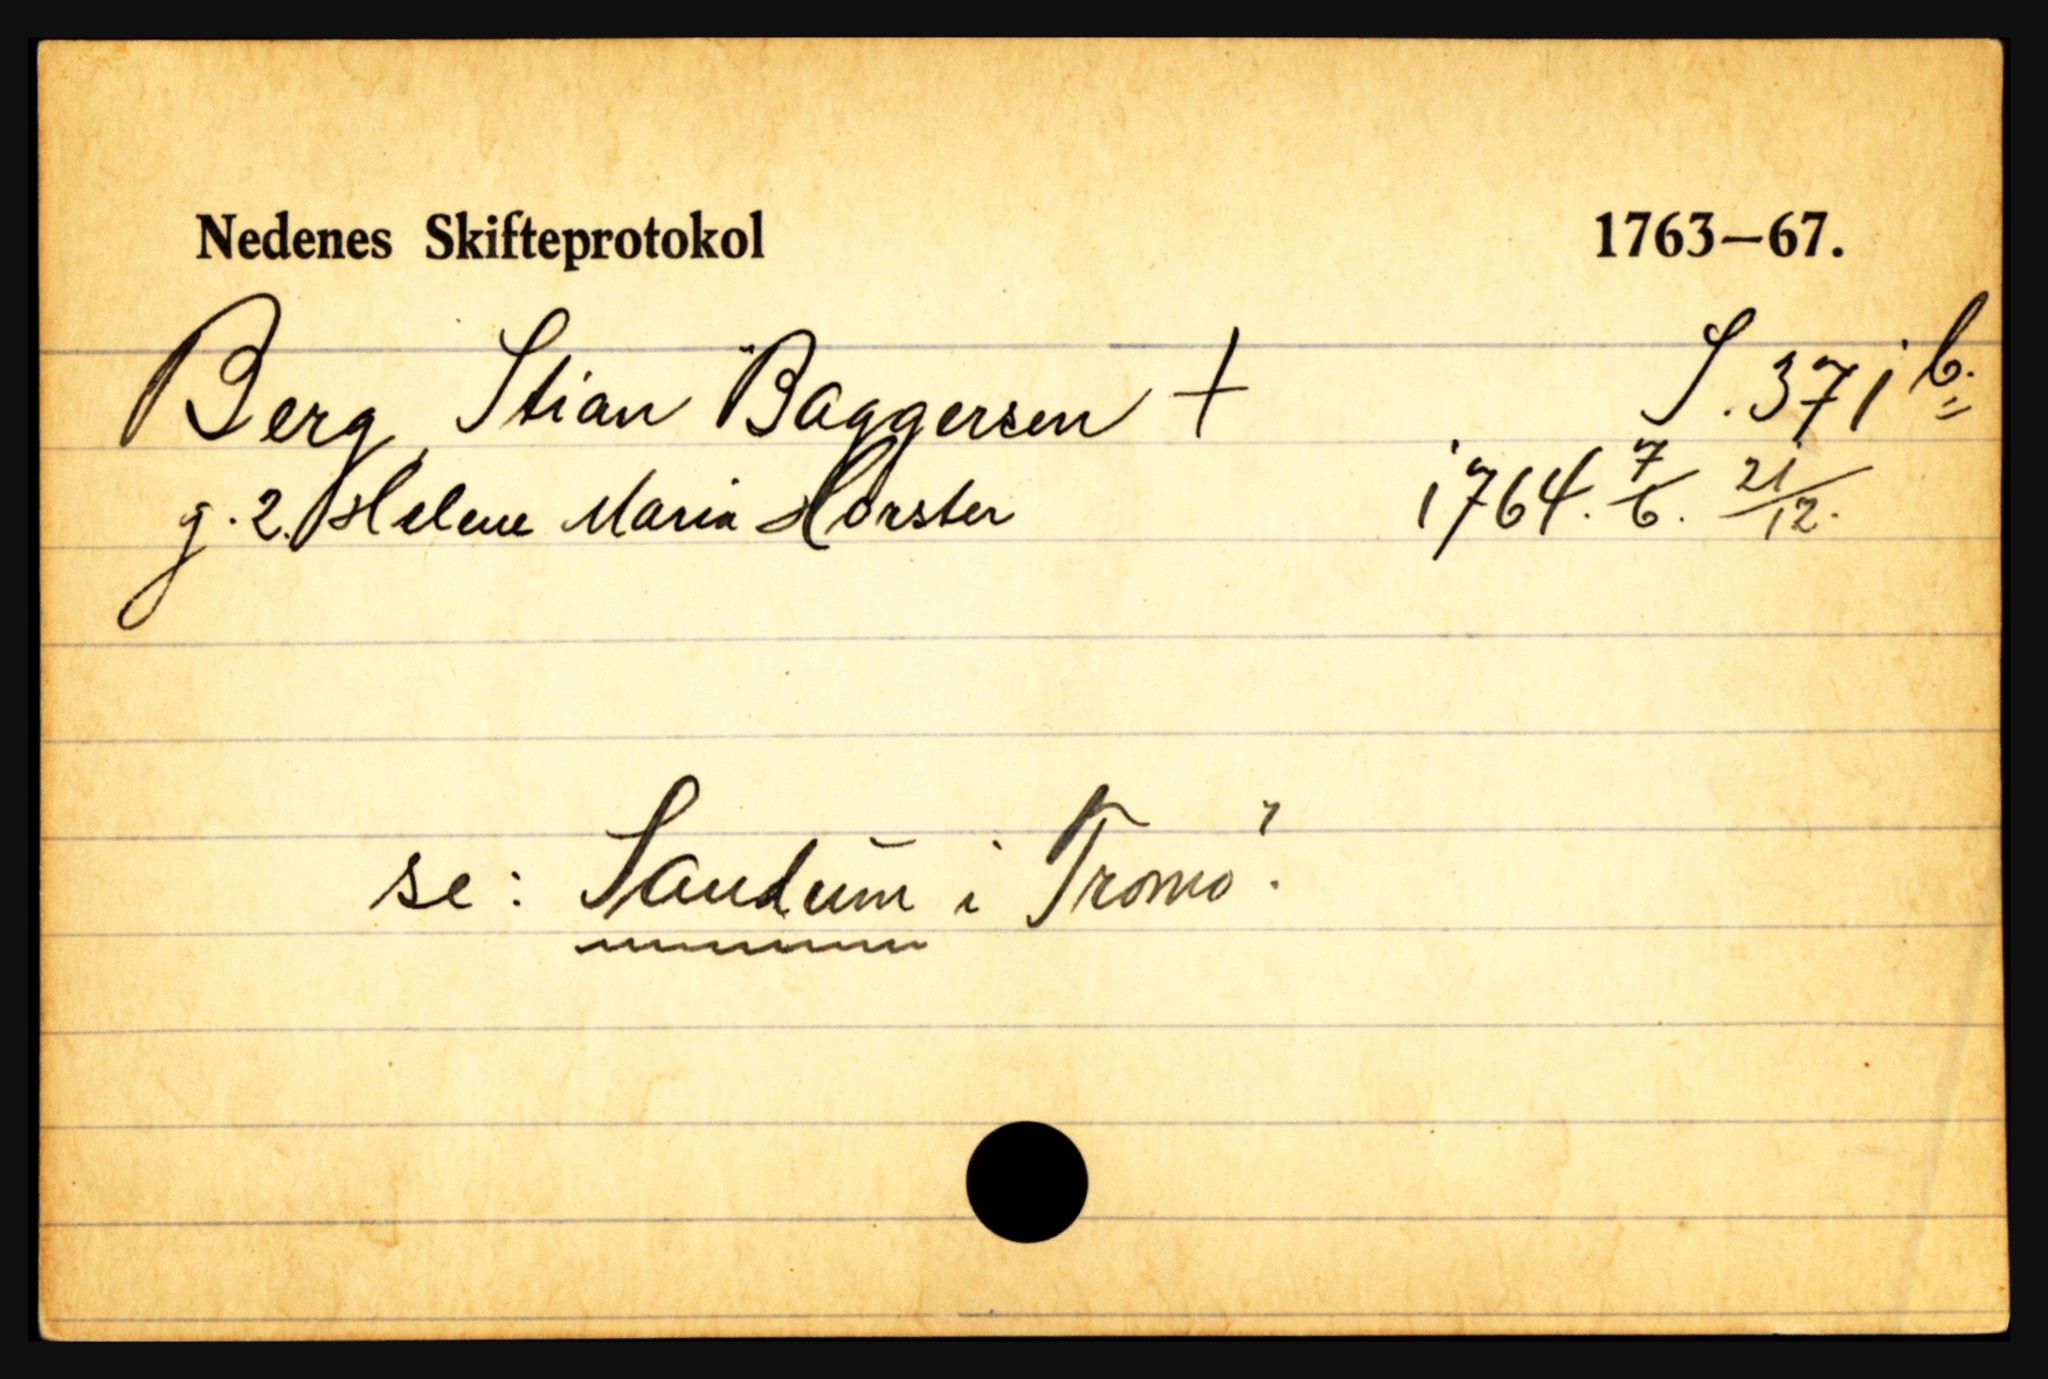 Nedenes Skifteprotokol 1763—67.
Berg, Stian Baggersen + S. 371 b.
g. 2. Helene Maria Horster 1764. 7/6. 21/12.
se: Sandum i Tromö.